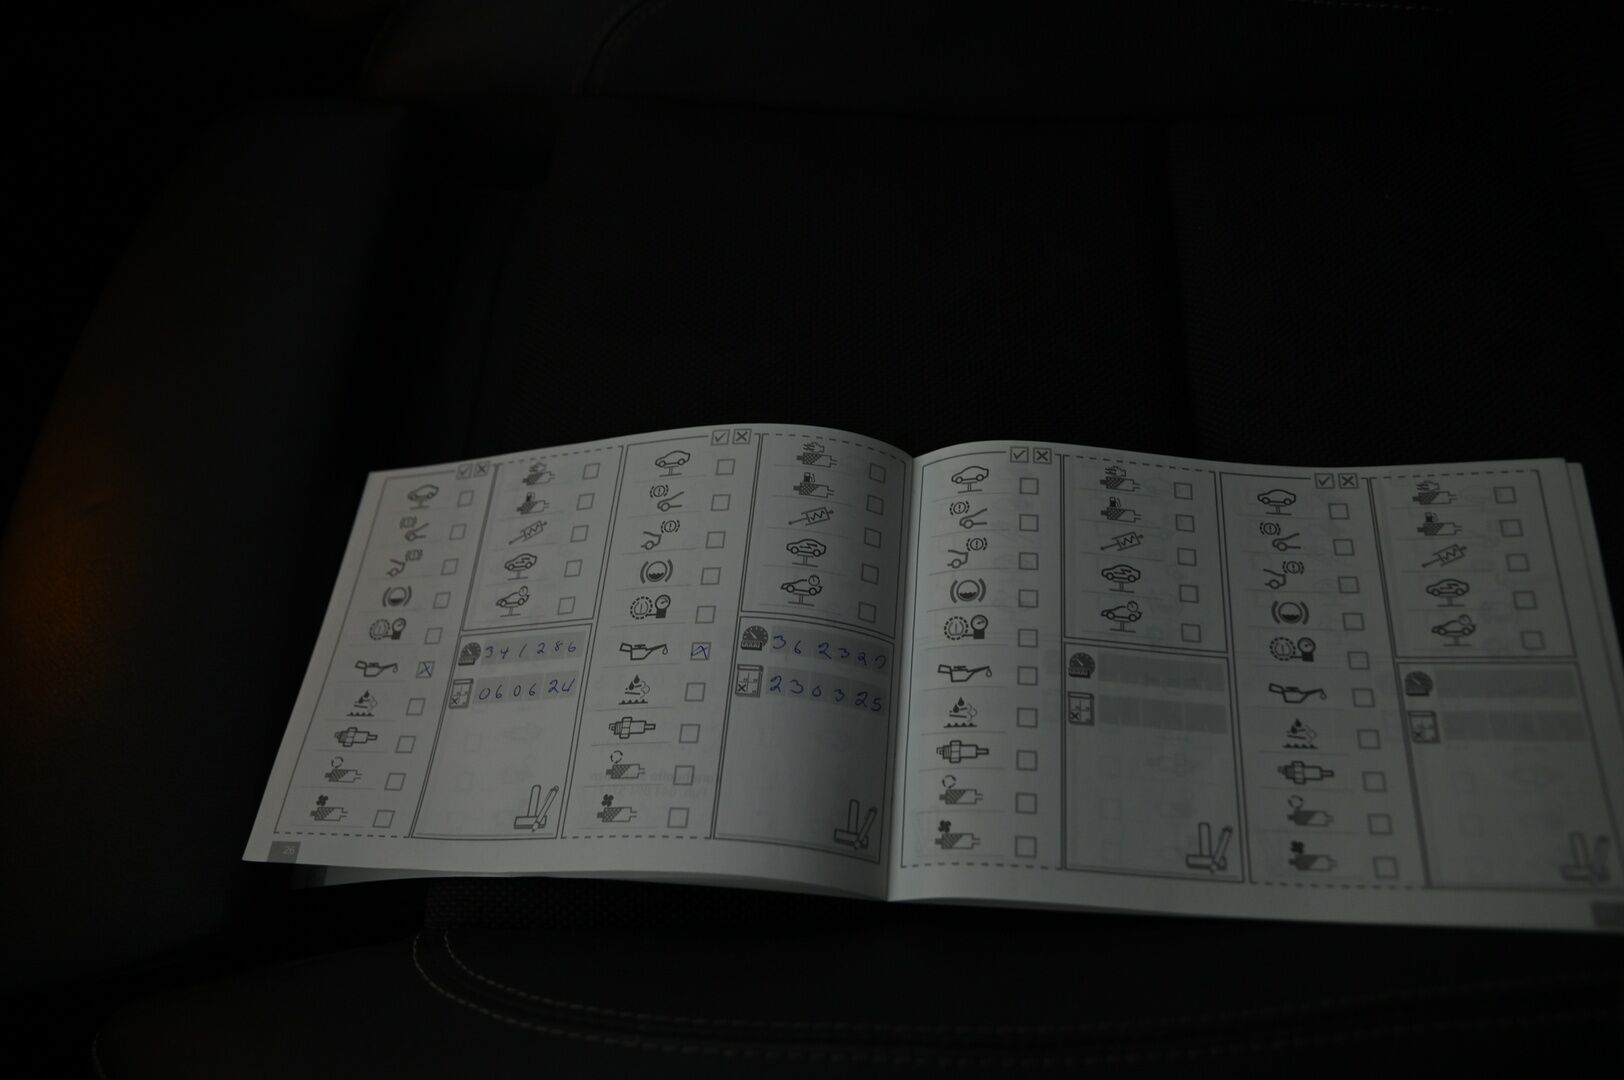 341286
060624
362327
230325
26